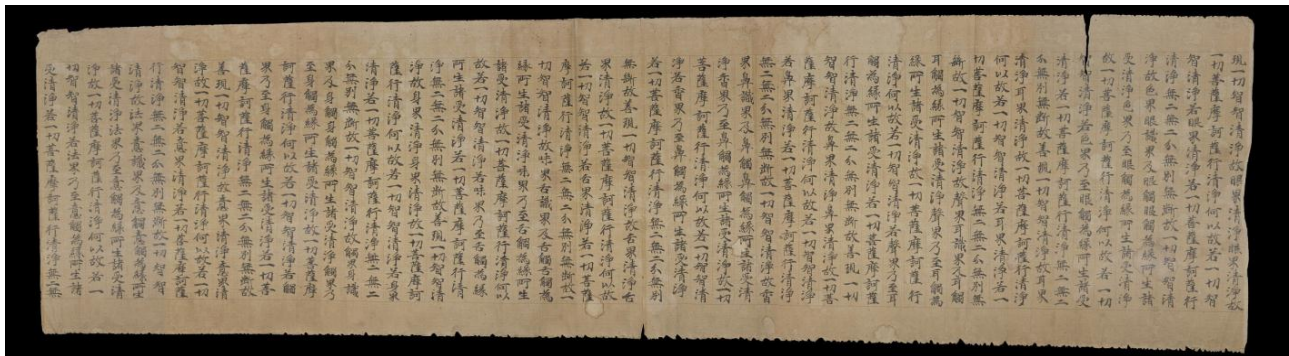 現一切智智清淨故眼界清淨眼界清淨故
一切菩薩摩訶薩行清淨何以故若一切智
智清淨若眼界清淨若一切菩薩摩訶薩行
清淨無二無二分無別無斷故一切智智清
淨故色界眼識界及眼觸眼觸為緣所生諸
受清淨色界乃至眼觸為緣所生諸受清淨
故一切菩薩摩訶薩行清淨何以故若一切
智智清淨若色界乃至眼觸為緣所生諸受
清淨若一切菩薩摩訶薩行清淨無二無二
分無別無斷故善現一切智智清淨故耳界
清淨耳界清淨故一切菩薩摩訶薩行清淨
何以故若一切智智清淨若耳界清淨若一
切菩薩摩訶薩行清淨無二無二分無別無
斷故一切智智清淨故聲界耳識界及耳觸
耳觸為緣所生諸受清淨聲界乃至耳觸為
緣所生諸受清淨故一切菩薩摩訶薩行
清淨何以故若一切智智清淨若聲界乃至耳
觸為緣所生諸受清淨若一切菩薩摩訶薩
行清淨無二無二分無別無斷故善現一切
智智清淨故鼻界清淨鼻界清淨故一切菩
薩摩訶薩行清淨何以故若一切智智清淨
若鼻界清淨若一切菩薩摩訶薩行清淨
無二無二分無別無斷故一切智智清淨故香
界鼻識界及鼻觸鼻觸為緣所生諸受清
淨香界乃至鼻觸為緣所生諸受清淨故一切
菩薩摩訶薩行清淨何以故若一切智智清
淨若香界乃至鼻觸為緣所生諸受清淨
若一切菩薩摩訶薩行清淨無二無二分無別
無斷故善現一切智智清淨故舌界清淨舌
界清淨故一切菩薩摩訶薩行清淨何以故
若一切智智清淨若舌界清淨若一切菩薩
摩訶薩行清淨無二無二分無別無斷故一
切智智清淨故味界舌識界及舌觸舌觸為
緣所生諸受清淨味界乃至舌觸為緣所生
諸受清淨故一切菩薩摩訶薩行清淨何以
故若一切智智清淨若味界乃至舌觸為緣
所生諸受清淨若一切菩薩摩訶薩行清
淨無二無二分無別無斷故善現一切智智清
淨故身界清淨身界清淨故一切菩薩摩訶
薩行清淨何以故若一切智智清淨若身界
清淨若一切菩薩摩訶薩行清淨無二無二
分無別無斷故一切智智清淨故觸界身識
界及身觸身觸為緣所生諸受清淨觸界乃
至身觸為緣所生諸受清淨故一切菩薩摩
訶薩行清淨何以故若一切智智清淨若觸
界乃至身觸為緣所生諸受清淨若一切菩
薩摩訶薩行清淨無二無二分無別無斷故
善現一切智智清淨故意界清淨意界清
淨故一切菩薩摩訶薩行清淨何以故若一切
智智清淨若意界清淨若一切菩薩摩訶薩
行清淨無二無二分無別無斷故一切智智
清淨故法界意識界及意觸意觸為緣所生
諸受清淨法界乃至意觸為緣所生諸受清
淨故一切菩薩摩訶薩行清淨何以故若一
切智智清淨若法界乃至意觸為緣所生諸
受清淨若一切菩薩摩訶薩行清淨無二無